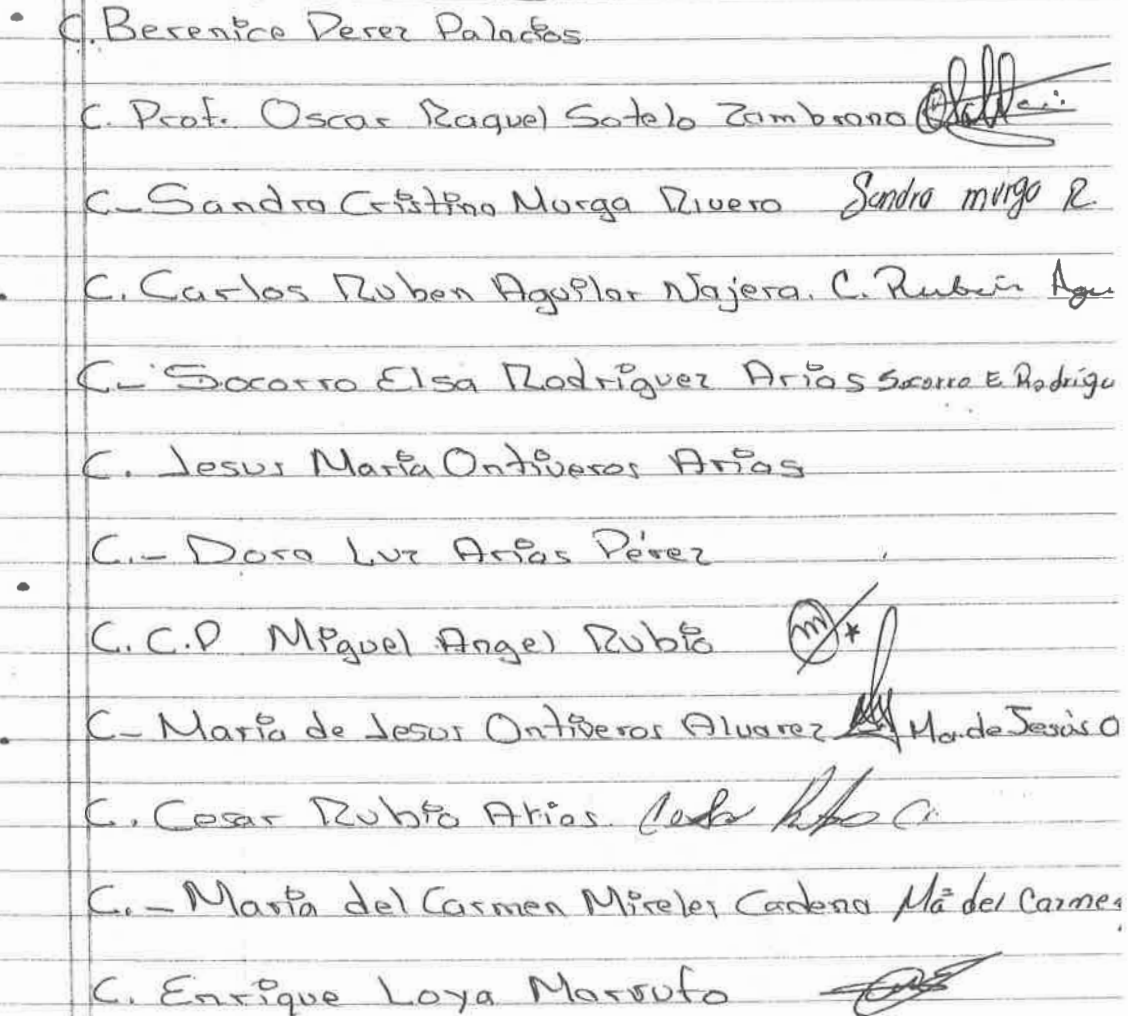 C. Berenice Perez Palacios
C. Prof. Oscar Raquel Sotelo Zambrano
C- Sandra Cristina Murga Rivero Sandra murga R.
C. Carlos Ruben Aguilar Najera. C. Rubén Agu
C- Socorro Elsa Rodriguez Arias Socorro E Rodrigu
C. Jesus María Ontiveros Arias
C.- Dora Luz Arias Pérez
C. C.P Miguel Angel Rubio
C- María de Jesus Ontiveros Alvarez Ma. de Jesús O
C. Cesar Rubio Arias
C.- María del Carmen Mireles Cadena Ma del Carme
C. Enrique Loya Marrufo